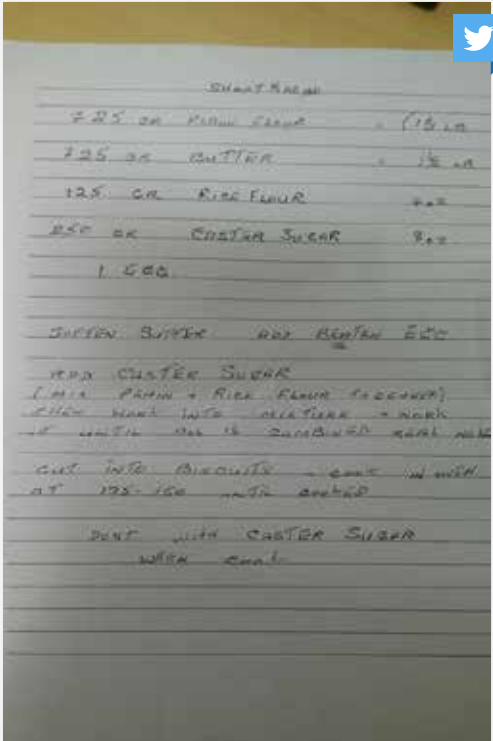 SHORTBREAD
725 GR PLAIN FLOUR = (1½ LB
725 GR BUTTER = 1½ LB
125 GR RICE FLOUR 4oz
250 GR CASTER SUGAR 8oz
1 EGG.
SOFTEN BUTTER ADD BEATEN EGG
ADD CASTER SUGAR
(MIX PLAIN + RICE FLOUR TOGETHER)
THEN WORK INTO MIXTURE - WORK
IT UNTIL ALL IS COMBINED REAL
CUT INTO BISCUITS - COOK IN OVEN
AT 175-160 UNTIL COOKED
DUST WITH CASTER SUGAR
WHEN COOL